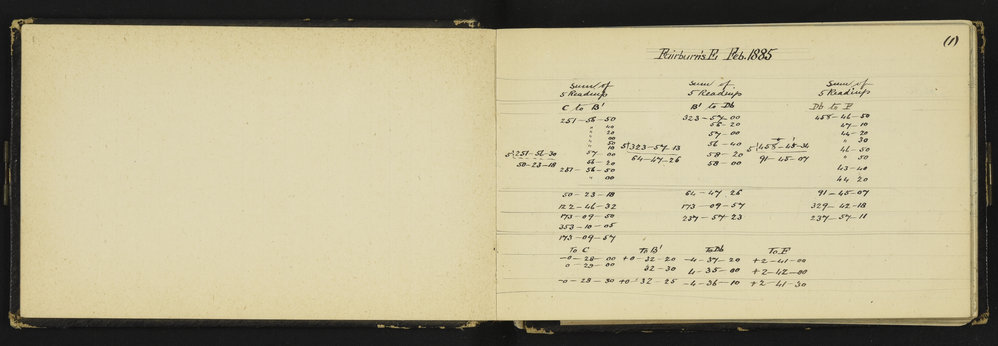 (1)
Fairburn's E. Feb. 1885
Sum of 5 Readings Sum of 5 Readings Sum of 5 Readings
C to B' B' to Db Db to E
251-56-50 323-57-00 458-46-50
" 40 56-20 47-10
" 20 57-00 44-20
" 00 56-40 " 30
" 50 58-20 46-50
" 10 58-00 " 50
57 00 43-40
56-20 44 20
251-56-50
" 00
5)251-56-30 5)323-57-13 5)458-45-36
50-23-18 64-47-26 91-45-07
50-23-18 64-47 26 91-45-07
122-46-32 173-09-57 329-42-18
173-09-50 237-57-23 237-57-11
353-10-05
173-09-57
To C To B' To Db To E
-0-28-00 +0-32-20 -4-37-20 +2-41-00
0-29-00 32-30 4-35-00 +2-42-00
-0-28-30 +0-32-25 -4-36-10 +2-41-30